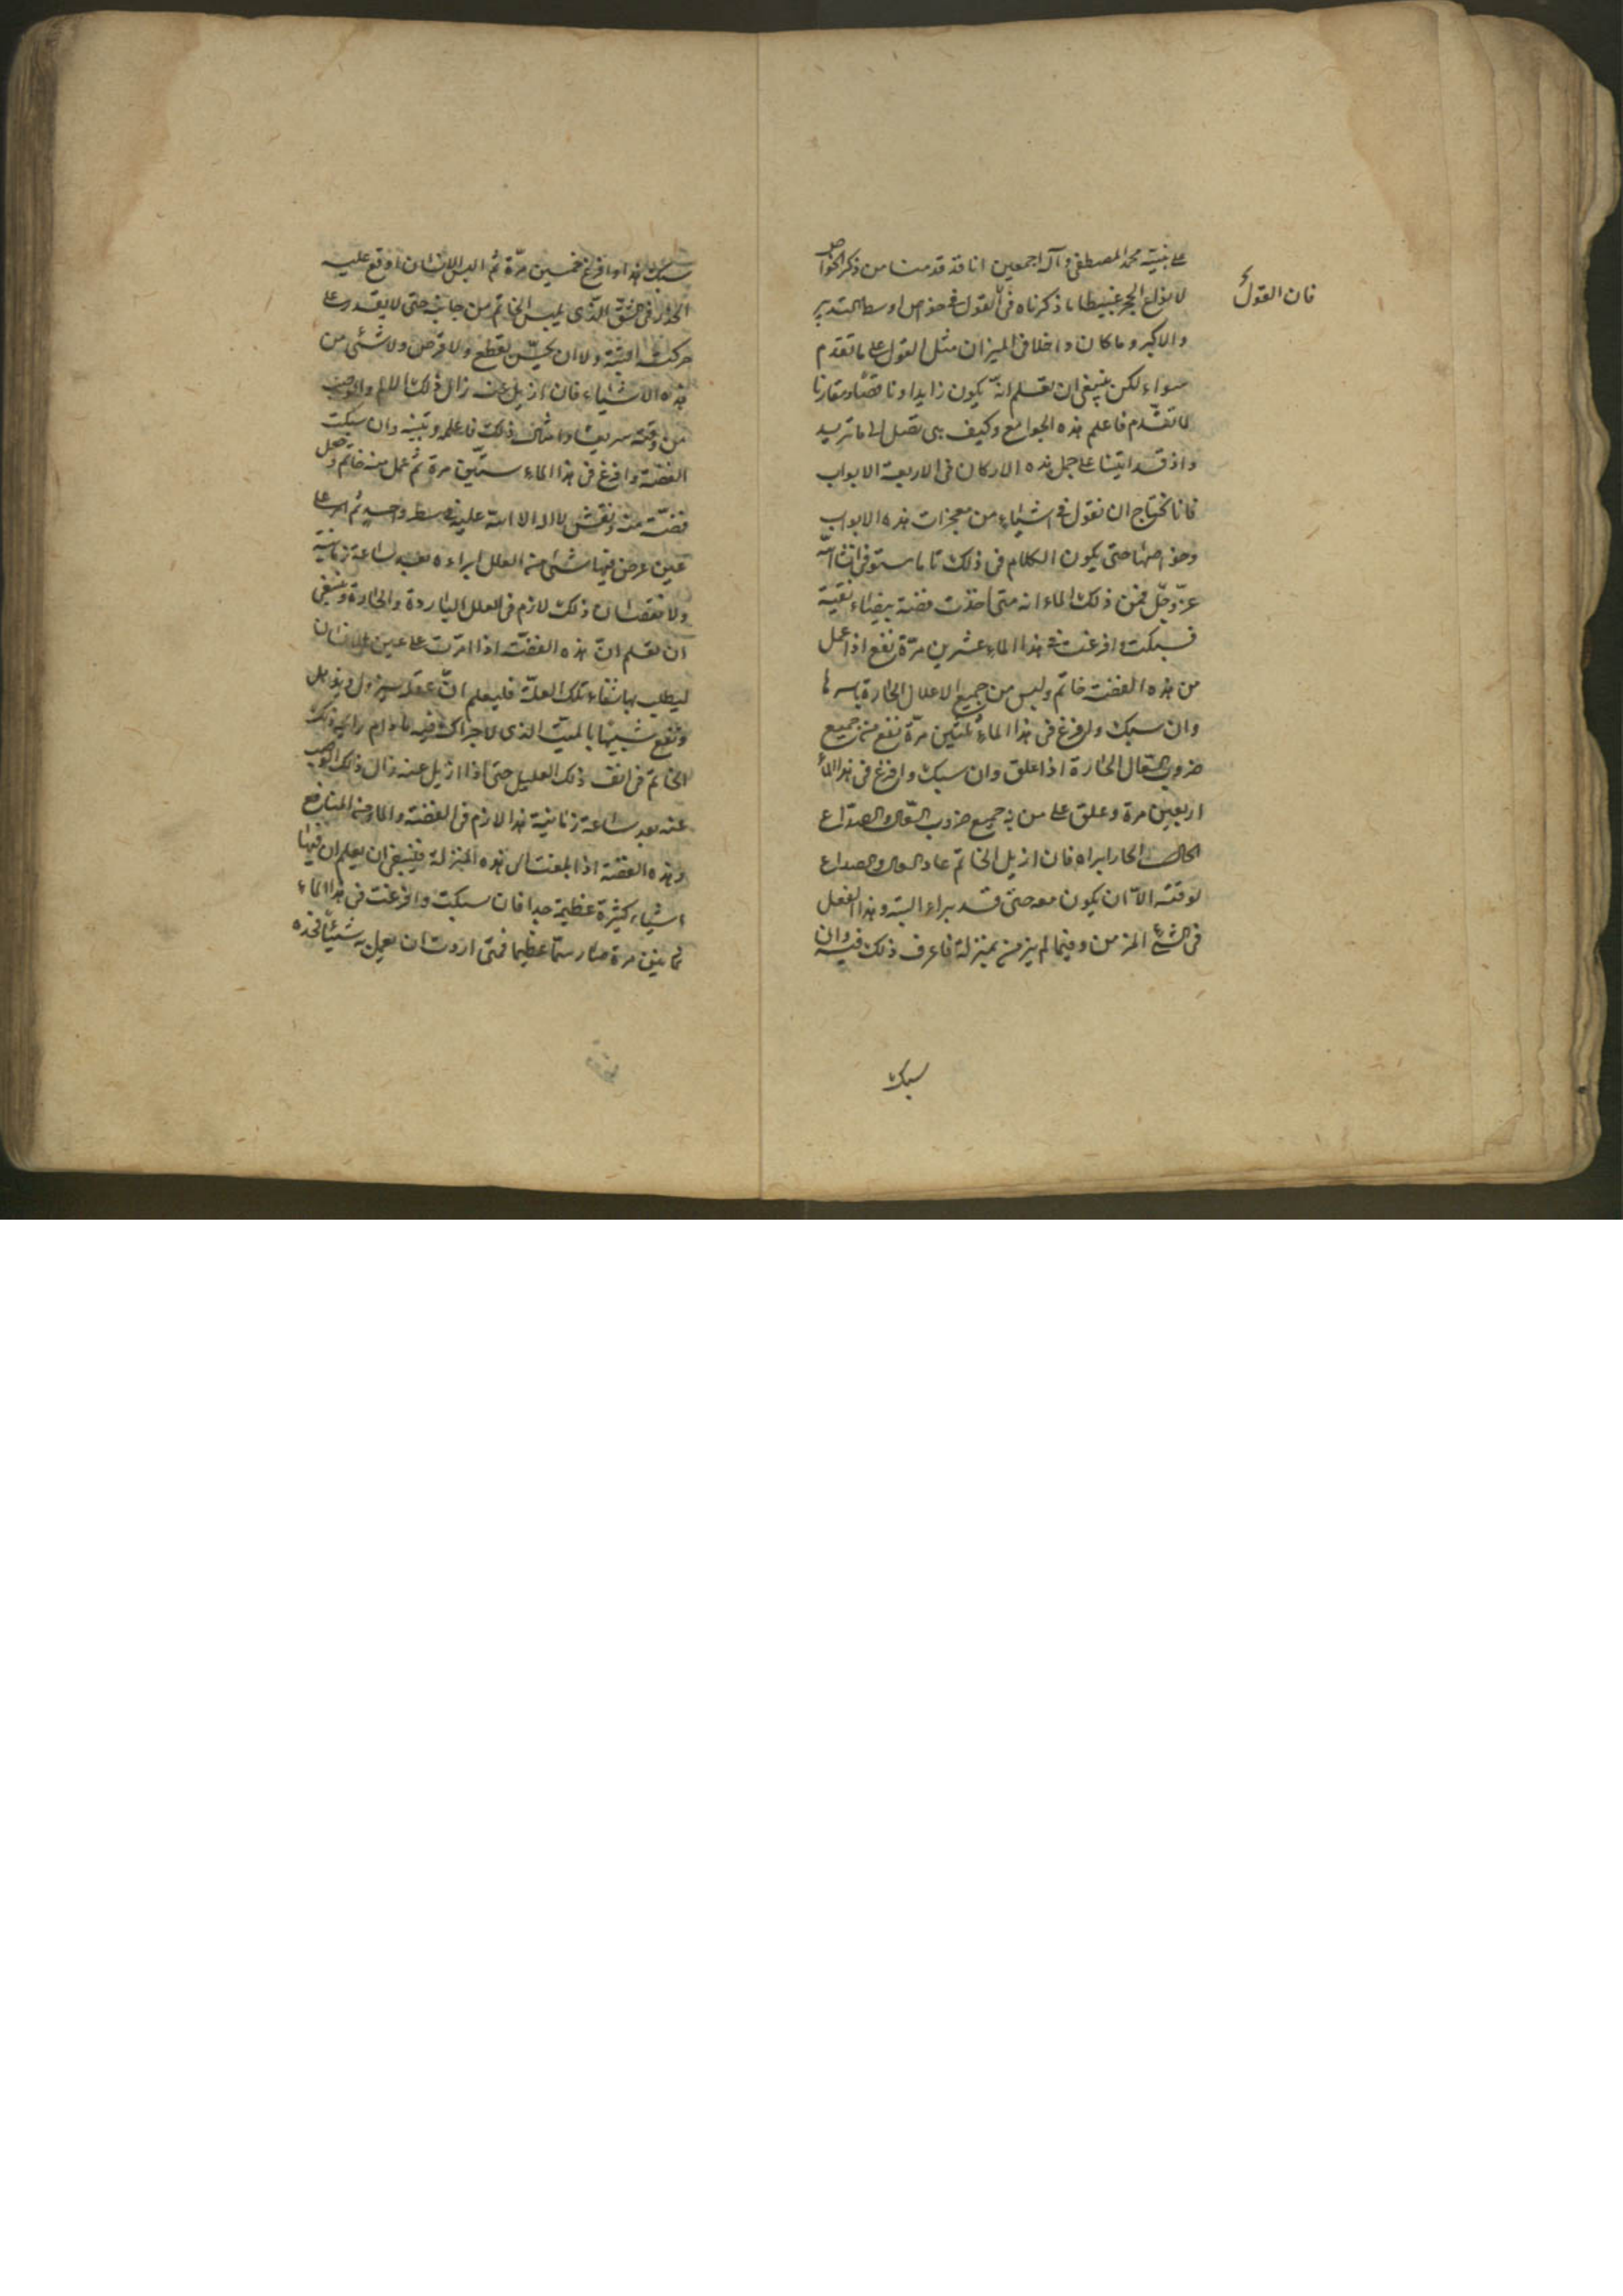 على نبيه محمد المصطفى وآله اجمعين انا قد قدمنا من ذكر الخواص
فان القول
لانواع الحجر بسيطا ما ذكرناه في القول في خواص اوسط التدبير
والاكبر وما كان داخلا في الميزان مثل القول على ما تقدم
سواء لكن ينبغي ان تعلم انه يكون زايدا وناقصا ومقارنا
لما تقدم فاعلم هذه الجوامع وكيف هي تصل الى ما تريد
واذ قد اتينا على جمل هذه الاركان في الاربعة الابواب
فانا نحتاج ان نقول في اشياء من معجزات هذه الابواب
وخواصها حتى يكون الكلام في ذلك تاما مستوفى انشا الله
عز وجل فمن ذلك الماء انه متى اخذت فضة بيضاء نقية
فسبكت وافرغت في هذا الماء عشرين مرة نفع اذا عمل
من هذه الفضة خاتم ولبس من جميع الاعلال الحارة باسرها
وان سبك وافرغ في هذا الماء ثلثين مرة نفع من جميع
ضروب السعال الحارة اذا علق وان سبك وافرغ في هذا الماء
اربعين مرة وعلق على من به جميع ضروب السعال والصداع
الحار ابراه فان ازيل الخاتم عاد السعال والصداع
لوقته الا ان يكون معه حتى قد براء البتة وهذا الفعل
في الشئ المزمن وفيما لم يزمن بمنزلة فاعرف ذلك فيه وان
سبك
سبك هذا وافرغ خمسين مرة ثم البس الانسان اوقع عليه
الخدر في الشق الذي يلبس الخاتم من جانبه حتى لا يقدر على
حركته البتة ولا ان يحس بقطع ولا قرض ولا شئ من
هذه الاشياء فان ازيل عنه زال ذلك الالم
من وقته سريعا ذلك فاعلمه وتبينه وان سبكت
الفضة وافرغ في هذا الماء ستين مرة ثم عمل منه خاتم وفصل
فضة منه ونقش لا اله الا الله عليه في سطر واحد ثم امر على
عين عرض فيها شئ من العلل ابراءه بعد ساعة زمانية
ولا نقصان ذلك لازم في العلل الباردة والحارة وينبغي
ان تعلم ان هذه الفضة اذا امرت على عين الانسان
ليطلب بها شفاء تلك العلة فليعلم ان عقله سيزول ويذهل
ويقع شبيها بالميت الذي لا حراك فيه ما دام رايحة ذلك
الخاتم في انف ذلك العليل حتى اذا ازيل عنه زال ذلك
عنه بعد ساعة زمانية هذا لازم في الفضة والماء من المنافع
وهذه الفضة اذا بلغت الى هذه المنزلة فينبغي ان يعلم ان فيها
اشياء كثيرة عظيمة جدا فان سبكت وافرغت في هذا الماء
ثمانين مرة صار سما عظيما فمتى اردت ان تعمل به شيئا فخذه